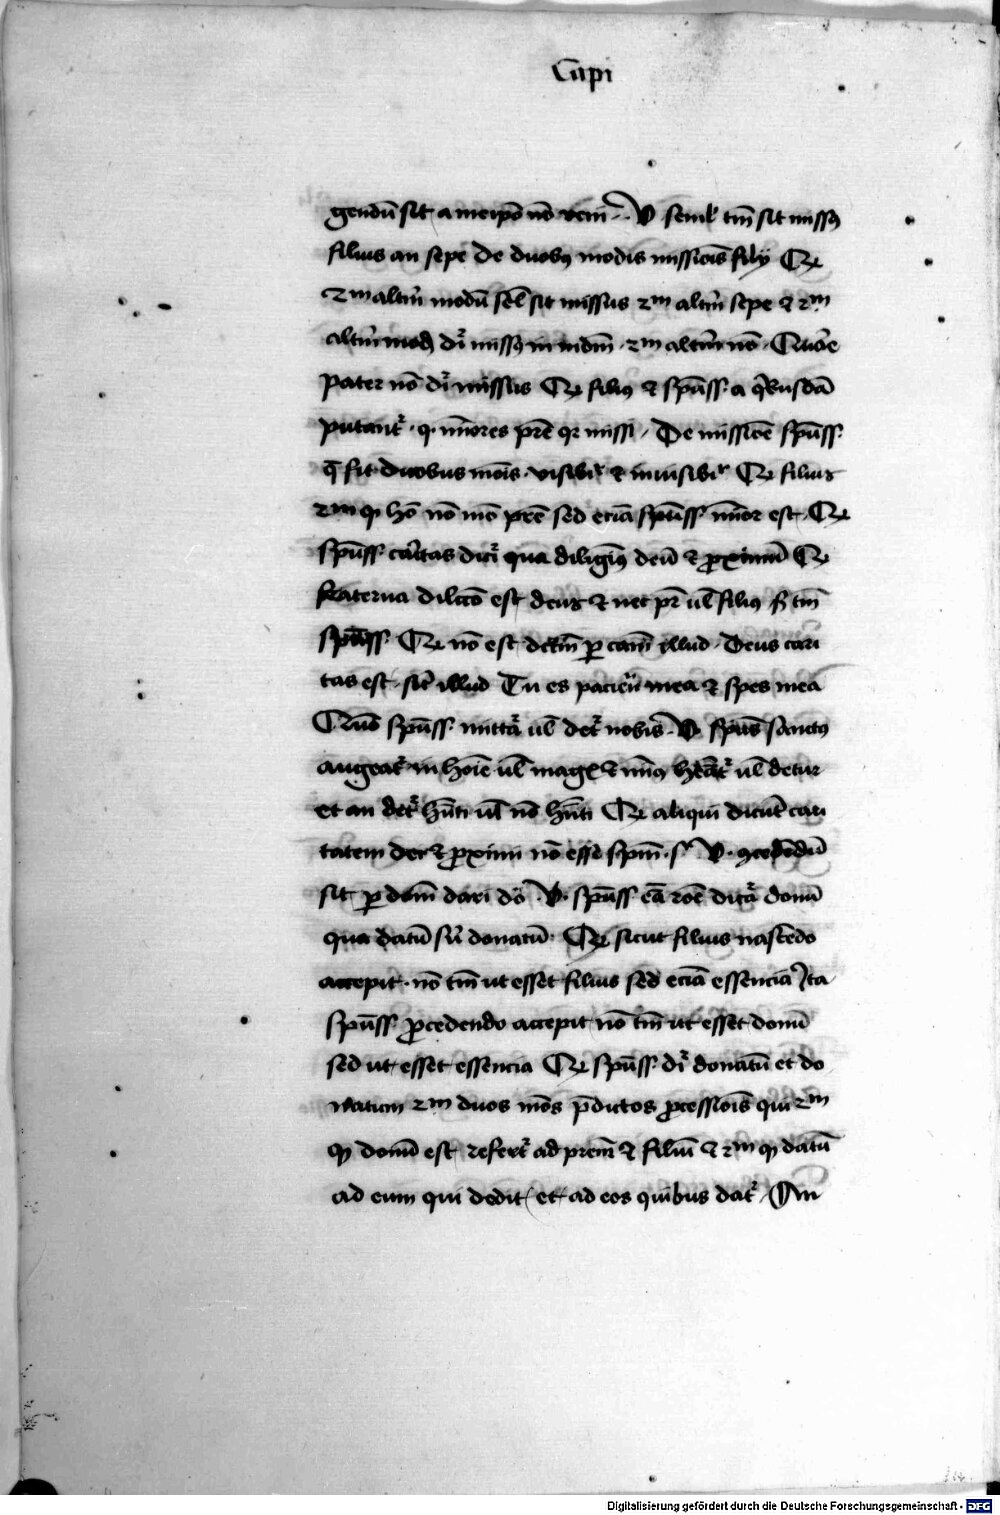 Capi
gendū sit a meipō nō veni. V. semel tm̄ sit missꝰ
filius an sepe De duobꝰ modis missiōis filij Qꝛ
2m altm̄ modū sel̄ sit missus 2m altm̄ sepe ⁊ 2m
altm̄ modū dr̄ missꝰ in mdm̄ . 2m altm̄ nō .
pater nō dr̄ missus Qꝛ filiꝰ ⁊ spūss. a qͥbusdā
putant᷑ . mīores pr̄e missi . De missiōe spūss.
q̄ fit duobus mōis . visibil᷑ ⁊ invisibil᷑ Qꝛ filius
2m ꝙ hō nō mō pr̄e sed eciā spūss. mīor est . Qꝛ
spūss. caritas dicit᷑ qua diligimꝰ deū ⁊ ꝓximū Qꝛ
fraterna dilcō est deus ⁊ nec pr̄ ul̄ filiꝰ tm̄
spūss. Qꝛ nō est dc̄m ꝑ cām illud . Deus cari
tas est . sic̄ illud Tu es paciēn mea ⁊ spes mea
spūss. mittat᷑ ul̄ det᷑ nobis . V. spūs sanctus
augeat᷑ in hoīe ul̄ magꝭ ⁊ minꝰ heat᷑ ul̄ detur
et an det᷑ hn̄ti ul̄ nō hn̄ti Qꝛ aliqui dicūt cari
tatem dei ⁊ ꝓximi nō esse spm̄ . s. V. ꝯcedēdū
sit ꝑ donū dari dō . V. spūss. eā rōe dicat᷑ donū
qua datū su᷑ donatū . Qꝛ sicut filius nascēdo
accepit . nō tm̄ ut esset filius sed eciā essenciā Ita
spūss. ꝓcedendo accepit nō tm̄ ut esset donū
sed ut esset essencia Qꝛ spūss. dr̄ donatū et do
natum 2m duos mōs p̄dictos ꝓcessiōis qui 2m
ꝙ donū est refert᷑ ad prem̄ ⁊ filiū ⁊ 2m ꝙ datū
ad eum qui dedit et ad eos quibus dat᷑ . An
Digitalisierung gefördert durch die Deutsche Forschungsgemeinschaft - DFG